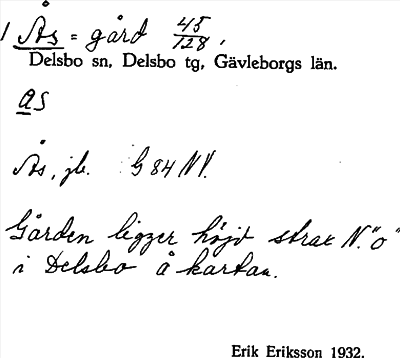 1 Ås = gård 45/128,
Delsbo sn, Delsbo tg, Gävleborgs län.
as
Ås, jb. G 84 NV.
Gården ligger höjd strax N. "o"
i Delsbo å kartan.
Erik Eriksson 1932.